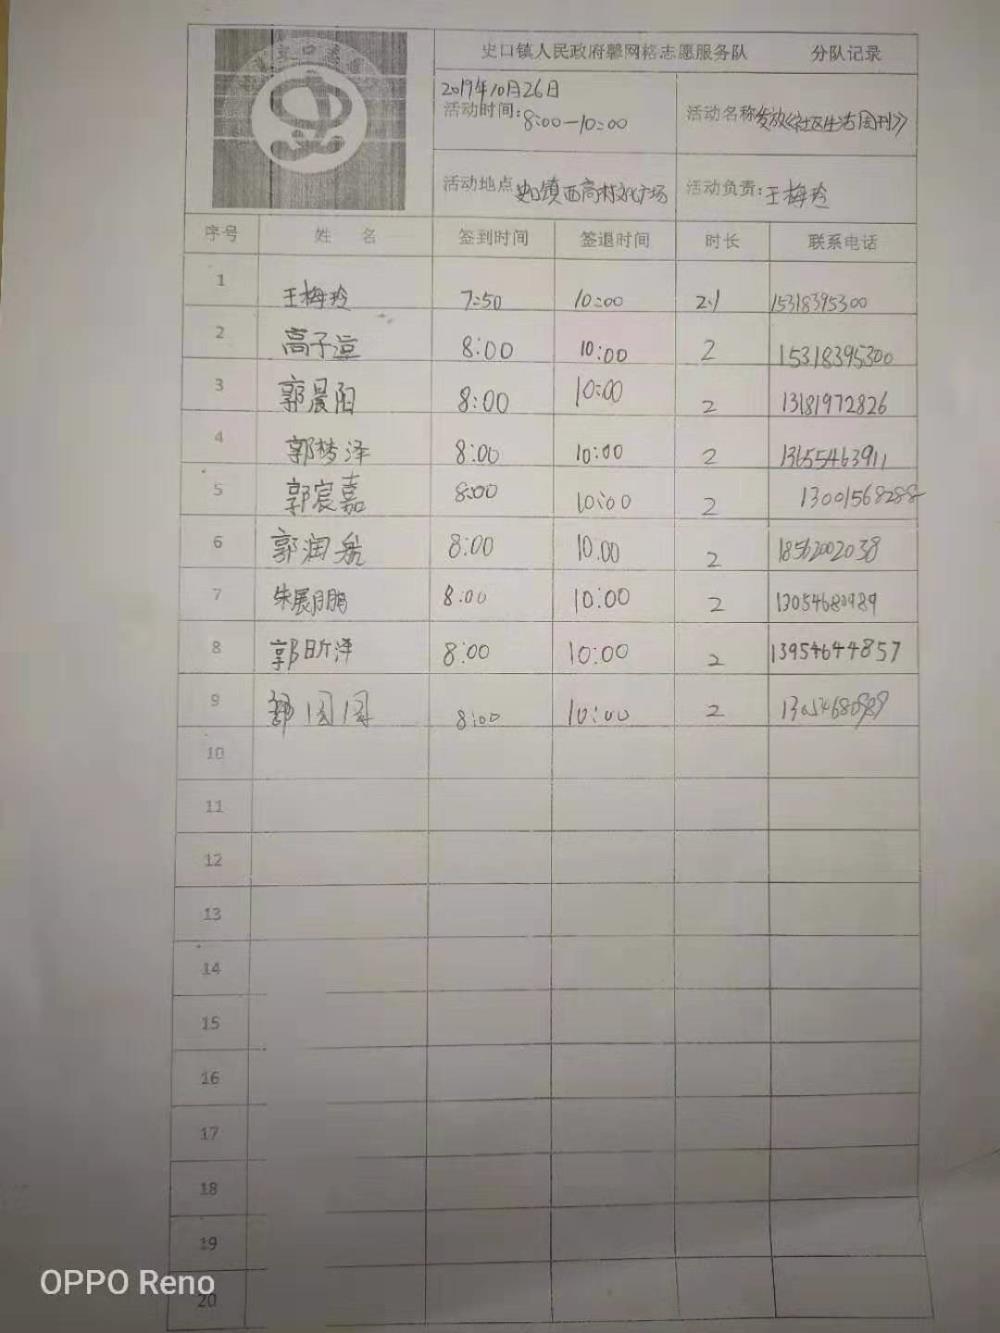 史口镇人民政府馨网格志愿服务队 分队记录
2019年10月26日
活动时间:8:00—10:00
活动名称 发放《社区生活周刊》
活动地点 史口镇西高村文化广场
活动负责:王梅玲
序号 姓 名 签到时间 签退时间 时长 联系电话
1 王梅玲 7:50 10:00 2.1 15318395300
2 高子 8:00 10:00 2 15318395300
3 郭晨阳 8:00 10:00 2 13181972826
4 郭梦泽 8:00 10:00 2 13655463911
5 郭宸嘉 8:00 10:00 2 13001568288
6 郭润航 8:00 10:00 2 18562002038
7 朱展鹏 8:00 10:00 2 13054680989
8 郭昕泽 8:00 10:00 2 13954644857
9 8:00 10:00 2 13054680989
10
11
12
13
14
15
16
17
18
19
20
OPPO Reno